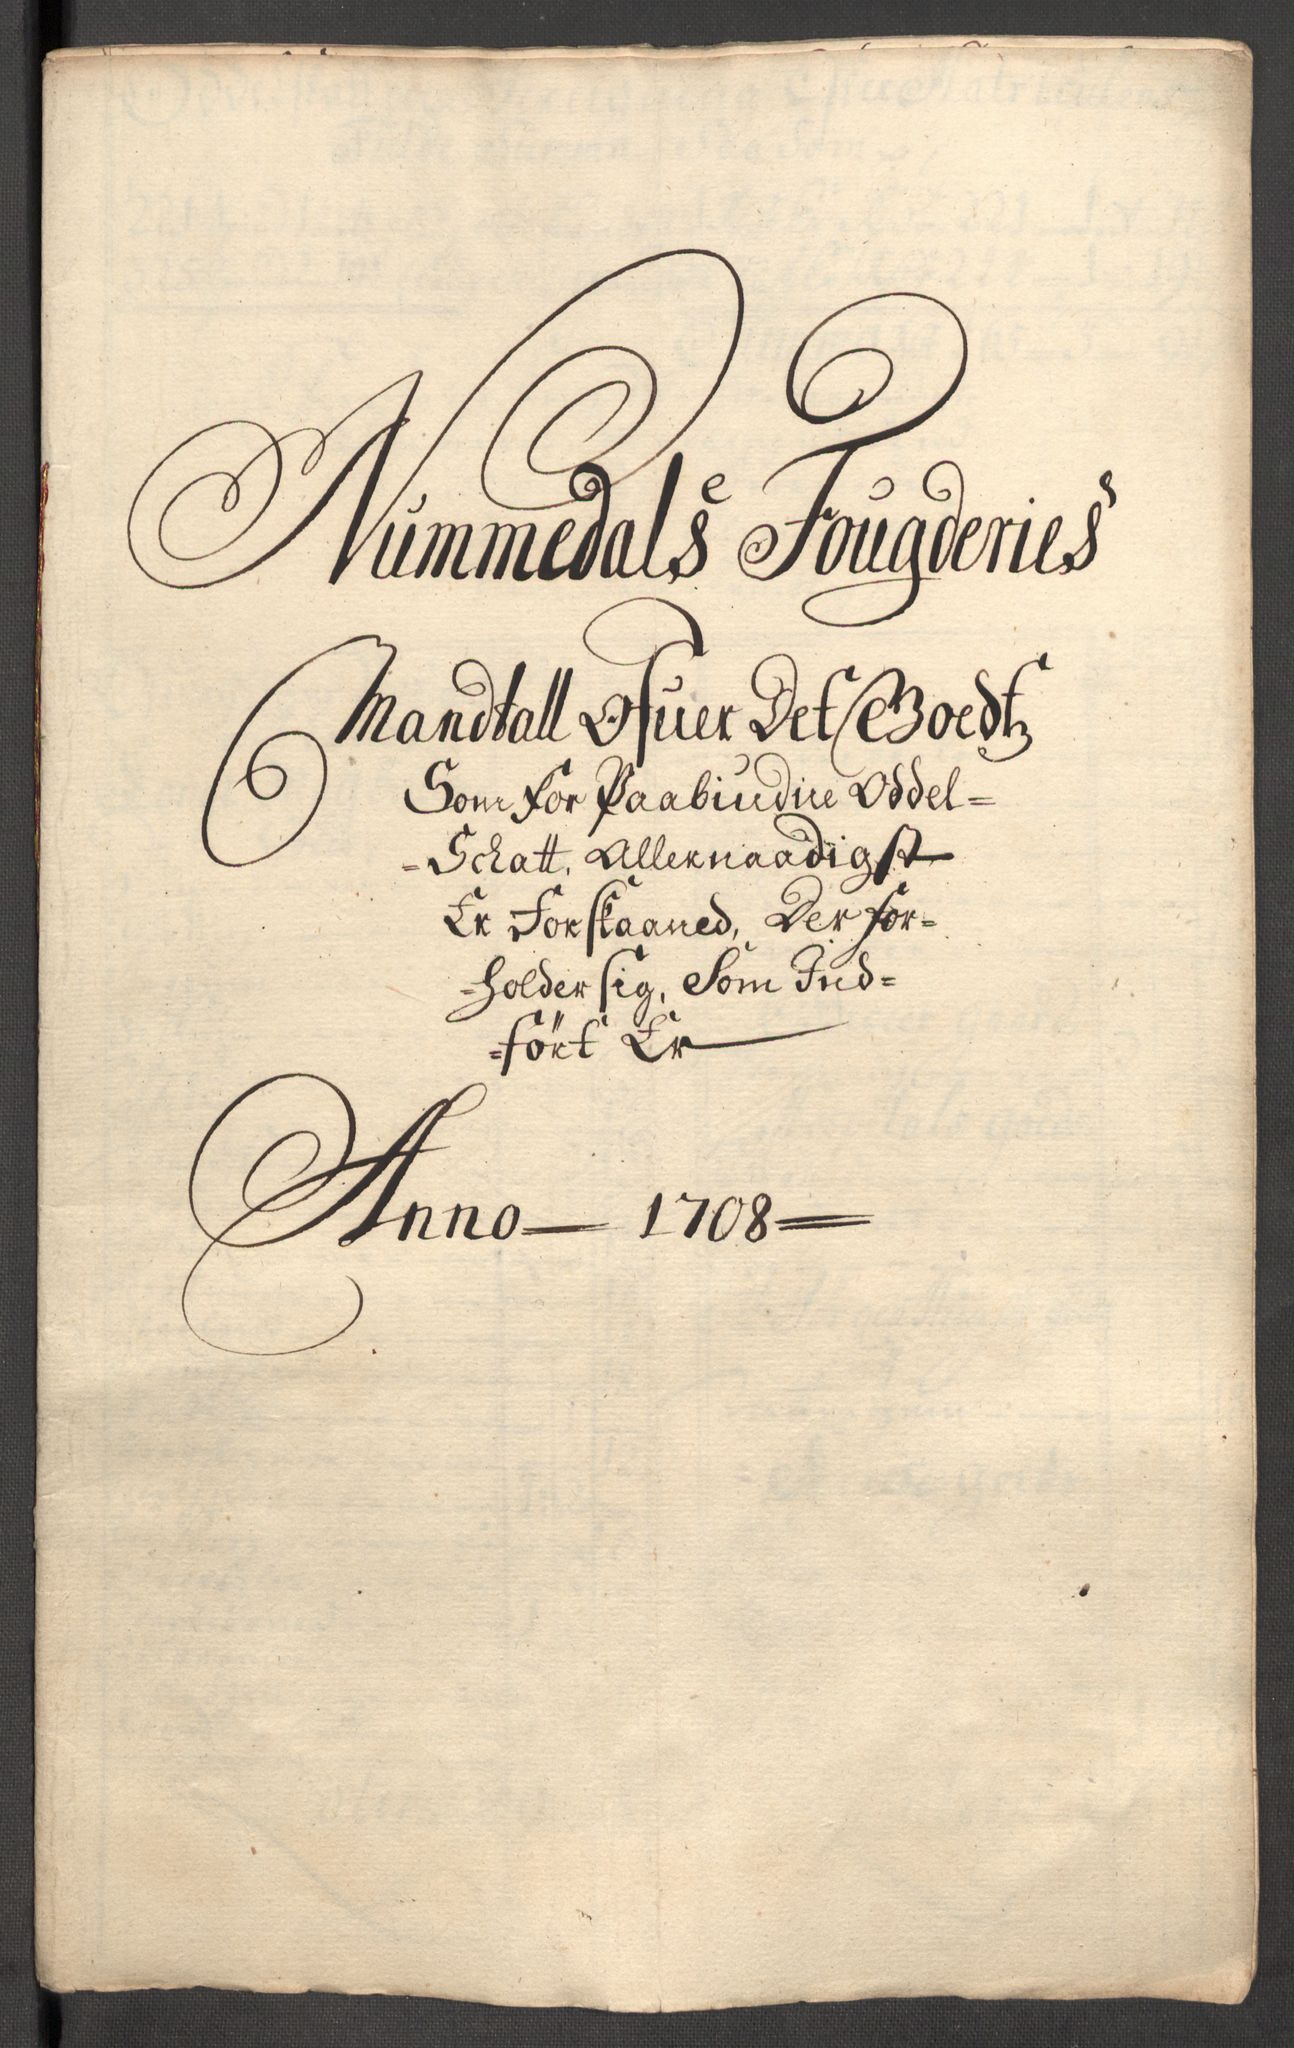 Nummedals Fougderies
Mandtall Ofuer Det Goedtz
Som for Paabudne Oddel=
=Schatt, Allernaadigst
Er Forskaaned, Der for=
=holder sig, Som Ind=
=fört Er
Anno 1708